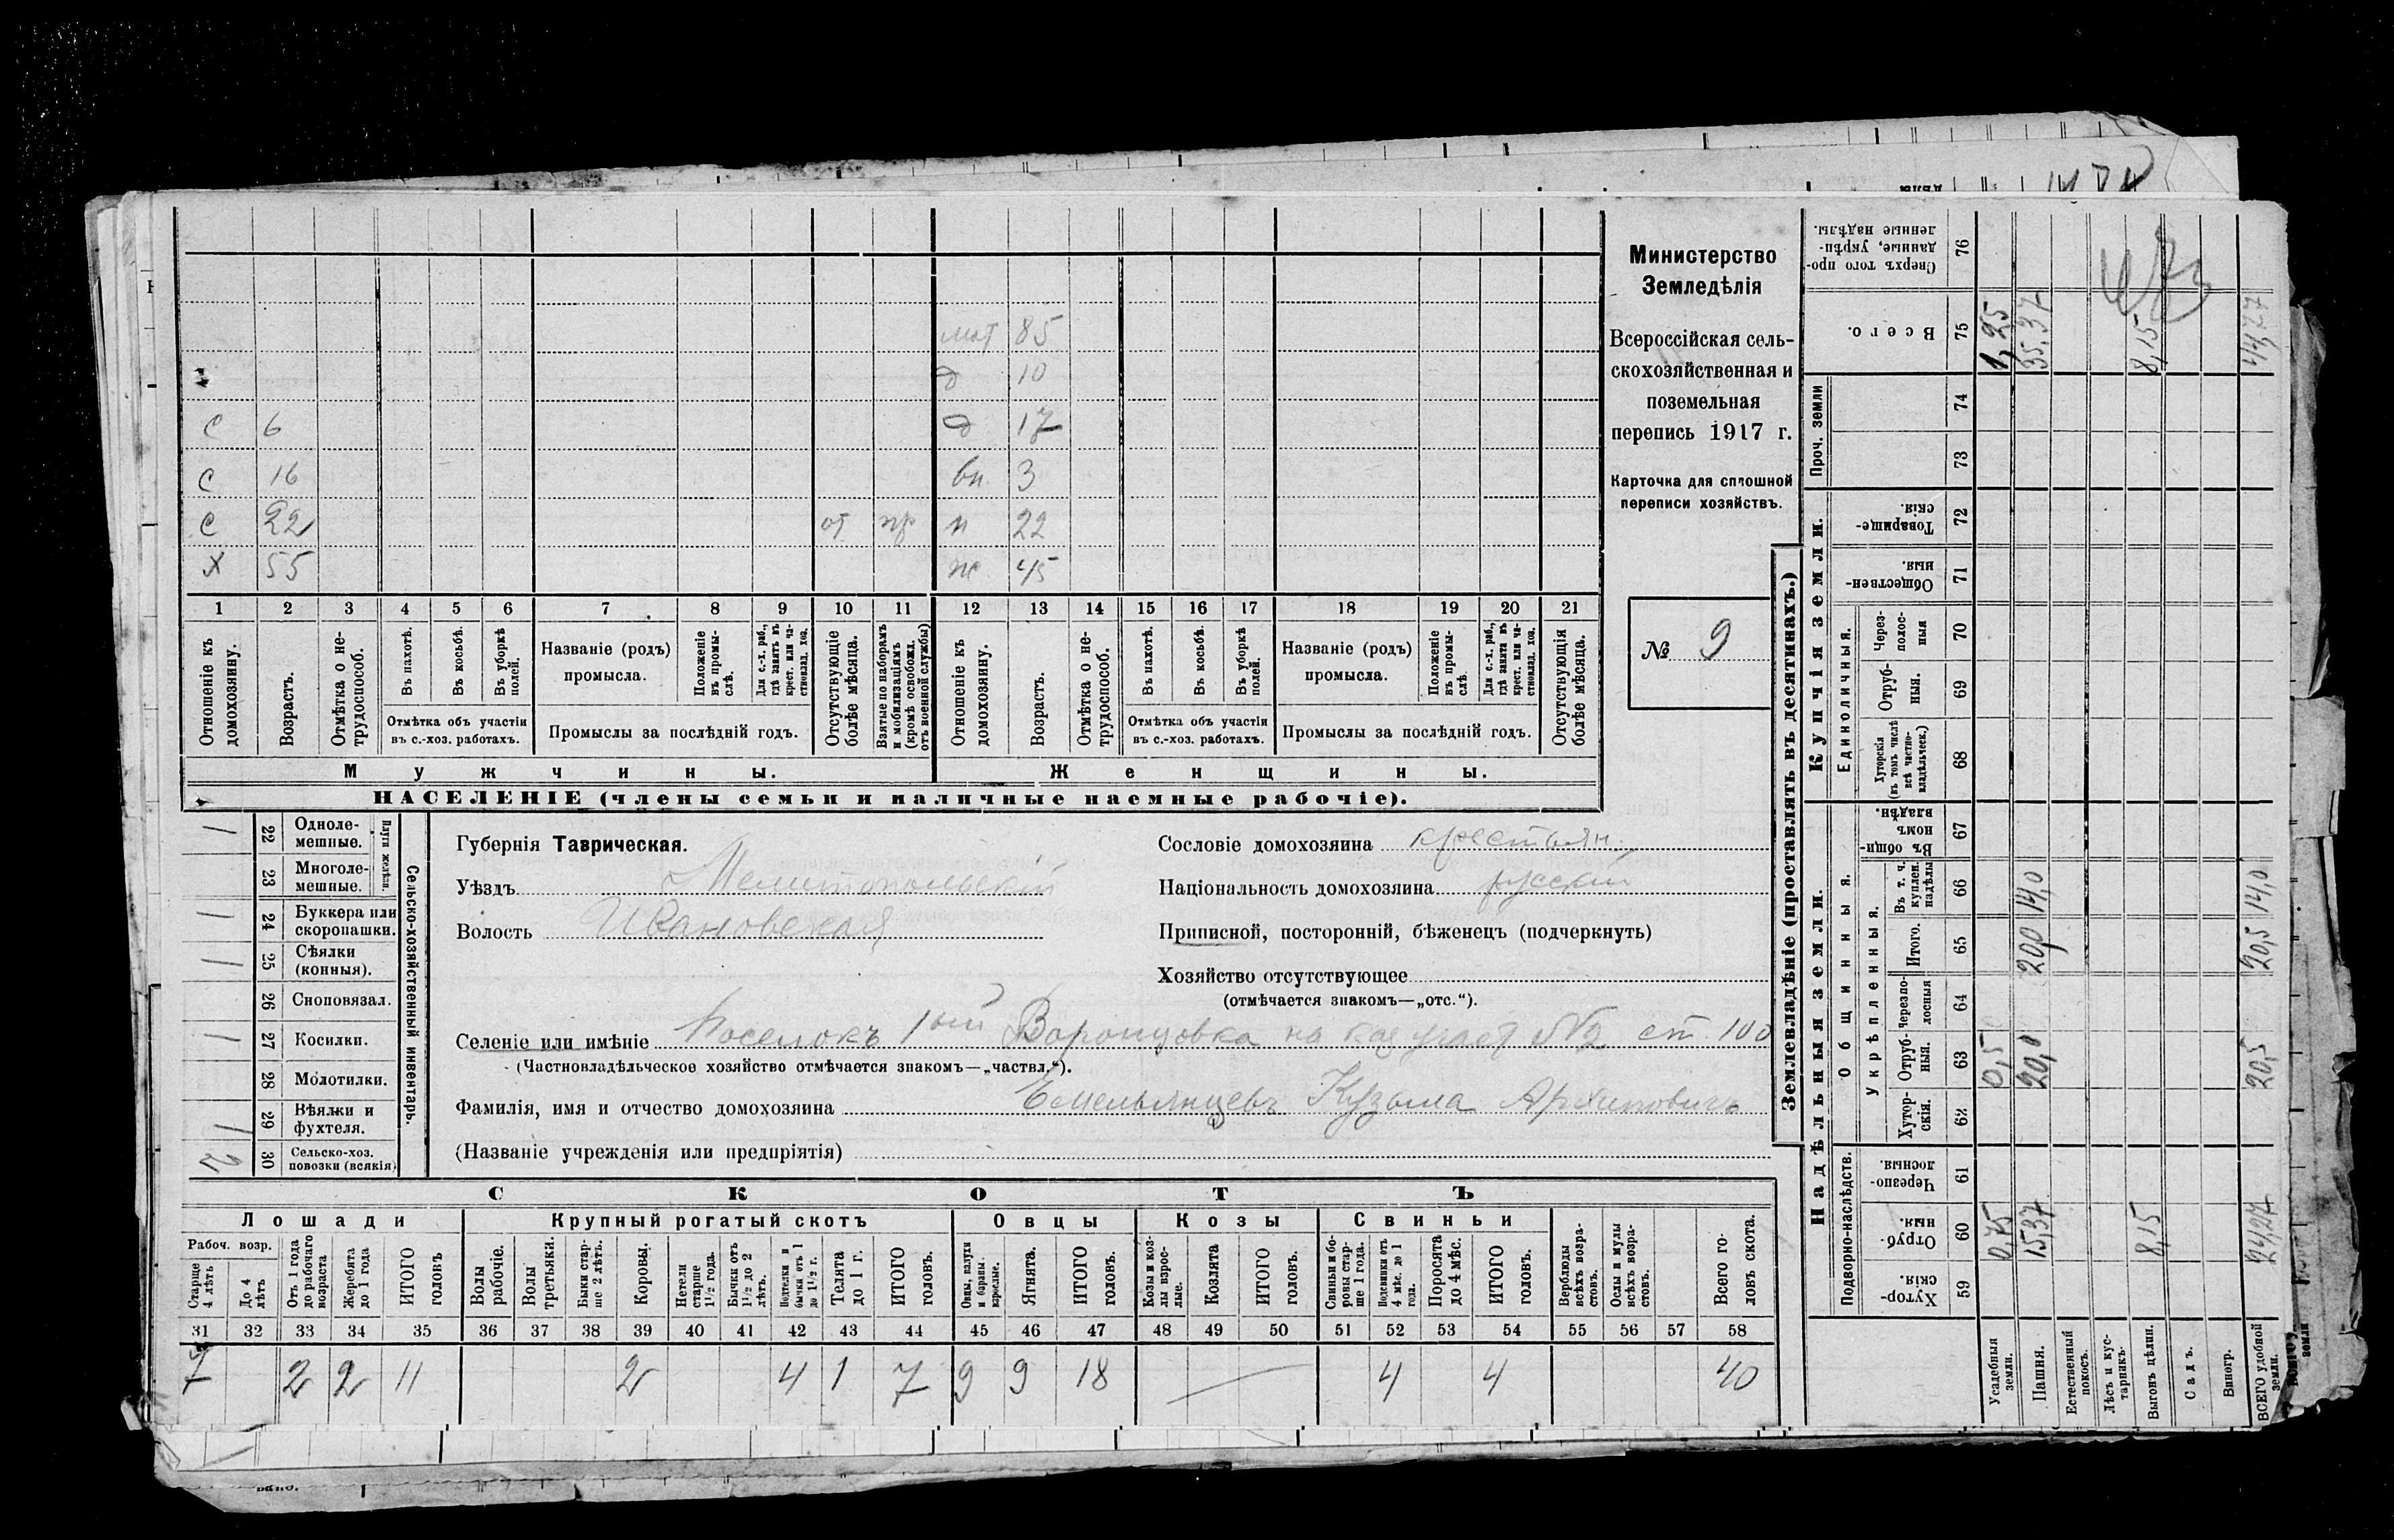 мат 85
д 10
с 6 д 17
с 16 вн. 3
с 22 от пр н 22
х 55 ж 45
1 2 3 4 5 6 7 8 9 10 11 12 13 14 15 16 17 18 19 20 21
Отношеніе къ домохозяину.
Возрастъ.
Отмѣтка о не-трудоспособ.
Въ пахотѣ.
Въ косьбѣ.
Въ уборкѣ полей.
Отмѣтка объ участіи
въ с.-хоз. работахъ.
Названіе (родъ)
промысла.
Положеніе въ промы-слѣ.
Для с.-х. раб., гдѣ занятъ въ крест. или ча-стновлад. хоз.
Промыслы за послѣдній годъ.
Отсутствующіе болѣе мѣсяца.
Взятые по наборамъ и мобилизаціямъ (кромѣ освобожд. отъ военной службы)
Отношеніе къ домохозяину.
Возрастъ.
Отмѣтка о не-трудоспособ.
Въ пахотѣ.
Въ косьбѣ.
Въ уборкѣ полей.
Отмѣтка объ участіи
въ с.-хоз. работахъ.
Названіе (родъ)
промысла.
Положеніе въ промы-слѣ.
Для с.-х. раб., гдѣ занята въ крест. или ча-стновлад. хоз.
Промыслы за послѣдній годъ.
Отсутствующія болѣе мѣсяца.
Мужчины. Женщины.
НАСЕЛЕНІЕ (члены семьи и наличные наемные рабочіе).
Министерство
Земледѣлія
Всероссійская сель-
скохозяйственная и
поземельная
перепись 1917 г.
Карточка для сплошной
переписи хозяйствъ.
№ 9
Сельско-хозяйственный инвентарь.
Плуги желѣзн.
1 22 Одноле-мешные.
23 Многоле-мешные.
1 24 Буккера или скоропашки.
1 25 Сѣялки (конныя).
26 Сноповязал.
1 27 Косилки.
28 Молотилки.
1 29 Вѣялки и фухтеля.
2 30 Сельско-хоз. повозки (всякія)
Губернія Таврическая.
Уѣздъ Мелитопольскій
Волость Ивановская
Сословіе домохозяина крестьян.
Національность домохозяина русскій
Приписной, посторонній, бѣженецъ (подчеркнуть)
Хозяйство отсутствующее
(отмѣчается знакомъ—„отс.“).
Селеніе или имѣніе Поселокъ 1ый Воронцовка на каз участ №2 ст. 100
(Частновладѣльческое хозяйство отмѣчается знакомъ—„частвл.“).
Фамилія, имя и отчество домохозяина Емельянцевъ Кузьма Архиповичъ
(Названіе учрежденія или предпріятія)
СКОТЪ
Лошади Крупный рогатый скотъ Овцы Козы Свиньи
Рабоч. возр.
Старше 4 лѣтъ
До 4 лѣтъ
Отъ 1 года до рабочаго возраста
Жеребята до 1 года
ИТОГО головъ
Волы рабочіе.
Волы третьяки.
Быки стар-ше 2 лѣтъ.
Коровы.
Нетели старше 1 1/2 года.
Бычки отъ 1 1/2 до 2 лѣтъ.
Подтелки и бычки отъ 1 до 1 1/2 г.
Телята до 1 г.
ИТОГО головъ.
Овцы, валухи и бараны взрослые.
Ягнята.
ИТОГО головъ.
Козы и коз-лы взрос-лые.
Козлята
ИТОГО головъ.
Свиньи и бо-ровы стар-ше 1 года.
Подсвинки отъ 4 мѣс. до 1 года.
Поросята до 4 мѣс.
ИТОГО головъ.
Верблюды всѣхъ возра-стовъ.
Ослы и мулы всѣхъ возра-стовъ.
Всего го-ловъ скота.
31 32 33 34 35 36 37 38 39 40 41 42 43 44 45 46 47 48 49 50 51 52 53 54 55 56 57 58
7 2 2 11 2 4 1 7 9 9 18 4 4 40
Землевладѣніе (проставлять въ десятинахъ.)
Купчія земли.
Сверхъ того про-данные, укрѣп-ленные надѣлы. 76
Всего. 75 1,25 35,37 8,15 44,77
Проч. земли 74 73
Товарище-скія. 72
Обществен-ныя. 71
Единоличныя.
Через-полос-ныя 70
Отруб-ныя. 69
Хуторскія (въ томъ числѣ всѣ частно-владѣльческ.) 68
Надѣльныя земли.
Общинныя.
Въ общи-номъ владѣн. 67
Укрѣпленныя.
Въ т. ч. куплен. надѣлы 66 14,0 14,0
Итого. 65 20,5
Черезпо-лосныя 64
Отруб-ныя. 63 0,5 20,0 20,5
Хутор-скія. 62
Подворно-наслѣдств.
Черезпо-лосныя. 61
Отруб-ныя. 60 0,75 15,37 8,15 24,27
Хутор-скія. 59
Усадебныя земли.
Пашня.
Естественный покосъ.
Лѣсъ и кус-тарникъ.
Выгонъ цѣлин.
Садъ.
Виногр.
ВСЕГО удобной земли.